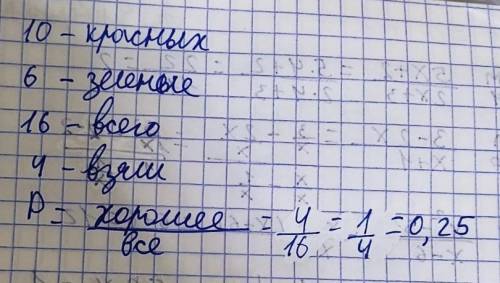 10 - красных
6 - зеленые
16 - всего
4 - взяли
P = хорошее/все = 4/16 = 1/4 = 0,25